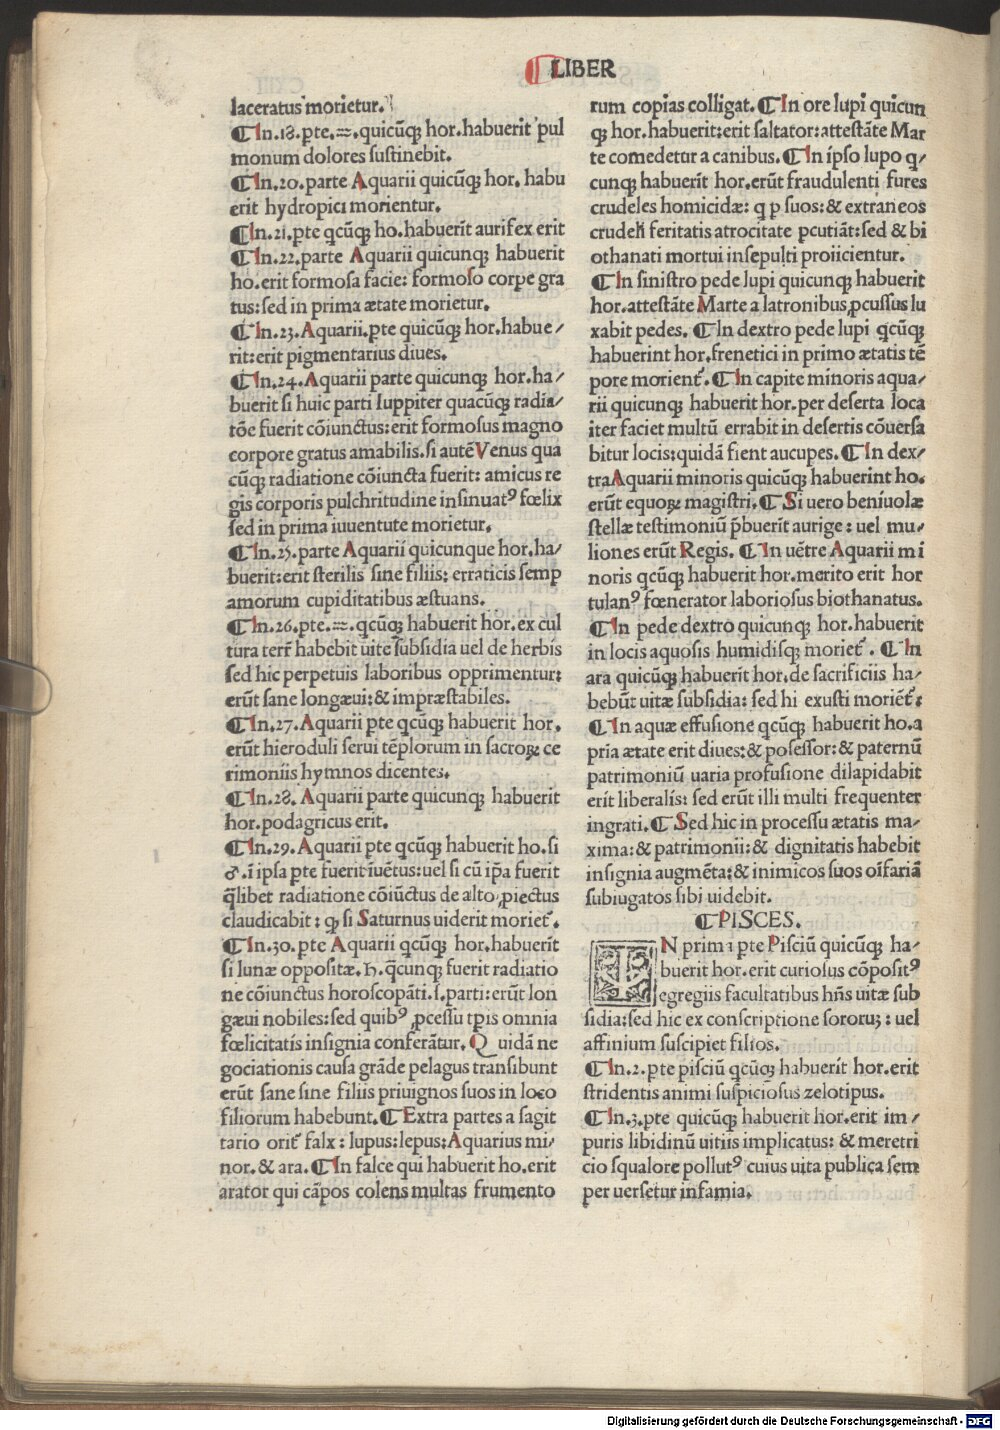 ¶ LIBER
laceratus morietur.
¶ In.18.pte.♒.quicūqꝫ hor.habuerit pul
monum dolores sustinebit.
¶ In.20.parte Aquarii quicūqꝫ hor. habu
erit hydropici morientur.
¶ In.21.pte qcūqꝫ ho.habuerit aurifex erit
¶ In.22.parte Aquarii quicunqꝫ habuerit
ho.erit formosa facie: formoso corpe gra
tus:sed in prima ætate morietur.
¶ In.23.Aquarii.pte quicūqꝫ hor.habue/
rit:erit pigmentarius diues.
¶ In.24.Aquarii parte quicunqꝫ hor.ha/
buerit si huic parti Iuppiter quacūqꝫ radia/
tōe fuerit cōiunctus:erit formosus magno
corpore gratus amabilis.si autē Venus qua
cūqꝫ radiatione cōiuncta fuerit: amicus re
gis corporis pulchritudine insinuatꝰ fœlix
sed in prima iuuentute morietur.
¶ In.25.parte Aquarii quicunque hor.ha/
buerit:erit sterilis sine filiis: erraticis semp
amorum cupiditatibus æstuans.
¶ In.26.pte.♒.qcūqꝫ habuerit hor.ex cul
tura terr̄ habebit uite subsidia uel de herbis
sed hic perpetuis laboribus opprimentur:
erūt sane longæui:& impræstabiles.
¶ In.27.Aquarii pte qcūqꝫ habuerit hor.
erūt hieroduli serui tēplorum in sacroꝝ ce
rimoniis hymnos dicentes.
¶ In.28. Aquarii parte quicunqꝫ habuerit
hor.podagricus erit.
¶ In.29.Aquarii pte qcūqꝫ habuerit ho.si
♂.ī ipsa pte fuerit iuētus:uel si cū ip̄a fuerit
q̄libet radiatione cōiūctus de alto ꝓiectus
claudicabit: qꝫ si Saturnus uiderit moriet̄.
¶ In.30.pte Aquarii qcūqꝫ hor.habuerit
si lunæ oppositæ.♄.q̄cunqꝫ fuerit radiatio
ne cōiunctus horoscopāti.i.parti:erūt lon
gæui nobiles:sed quibꝰ ꝓcessu tp̄is omnia
fœlicitatis insignia conferātur. Quidā ne
gociationis causa grāde pelagus transibunt
erūt sane sine filiis priuignos suos in loco
filiorum habebunt. ¶ Extra partes a sagit
tario orit̄ falx: lupus:lepus:Aquarius mi/
nor.& ara. ¶ In falce qui habuerit ho.erit
arator qui cāpos colens multas frumento
rum copias colligat. ¶ In ore lupi quicun
qꝫ hor.habuerit:erit saltator:attestāte Mar
te comedetur a canibus. ¶ In ipso lupo q/
cunqꝫ habuerit hor.erūt fraudulenti fures
crudeles homicidæ: q p suos:& extraneos
crudeli feritatis atrocitate pcutiāt:sed & bi
othanati mortui insepulti proiicientur.
¶ In sinistro pede lupi quicunqꝫ habuerit
hor.attestāte Marte a latronibus ꝓcussus lu
xabit pedes. ¶ In dextro pede lupi qcūqꝫ
habuerint hor.frenetici in primo ætatis tē
pore morient̄. ¶ In capite minoris aqua/
rii quicunqꝫ habuerit hor.per deserta loca
iter faciet multū errabit in desertis cōuersa
bitur locis:quidā fient aucupes. ¶ In dex/
tra Aquarii minoris quicūqꝫ habuerint ho.
erūt equoꝝ magistri. ¶ Si uero beniuolæ
stellæ testimoniū p̄buerit aurige: uel mu/
liones erūt Regis. ¶ In uētre Aquarii mi
noris qcūqꝫ habuerit hor.merito erit hor
tulanꝰ fœnerator laboriosus biothanatus.
¶ In pede dextro quicunqꝫ hor.habuerit
in locis aquosis humidisqꝫ moriet̄. ¶ In
ara quicūqꝫ habuerit hor.de sacrificiis ha/
bebūt uitæ subsidia: sed hi exusti moriēt̄:
¶ In aquæ effusione qcūqꝫ habuerit ho.a
pria ætate erit diues:& possessor:& paternū
patrimoniū uaria profusione dilapidabit
erit liberalis: sed erūt illi multi frequenter
ingrati. ¶ Sed hic in processu ætatis ma/
xima:& patrimonii:& dignitatis habebit
insignia augmēta:& inimicos suos oīfariā
subiugatos sibi uidebit.
¶ PISCES.
IN prima pte Pisciū quicūqꝫ ha/
buerit hor.erit curiosus cōpositꝰ
egregiis facultatibus hn̄s uitæ sub
sidia:sed hic ex conscriptione sororuꝫ: uel
affinium suscipiet filios.
¶ In.2.pte pisciū qcūqꝫ habuerit hor.erit
stridentis animi suspiciosus zelotipus.
¶ In.3.pte quicūqꝫ habuerit hor.erit im/
puris libidinū uitiis implicatus: & meretri
cio squalore pollutꝰ cuius uita publica sem
per uersetur infamia.
Digitalisierung gefördert durch die Deutsche Forschungsgemeinschaft - DFG